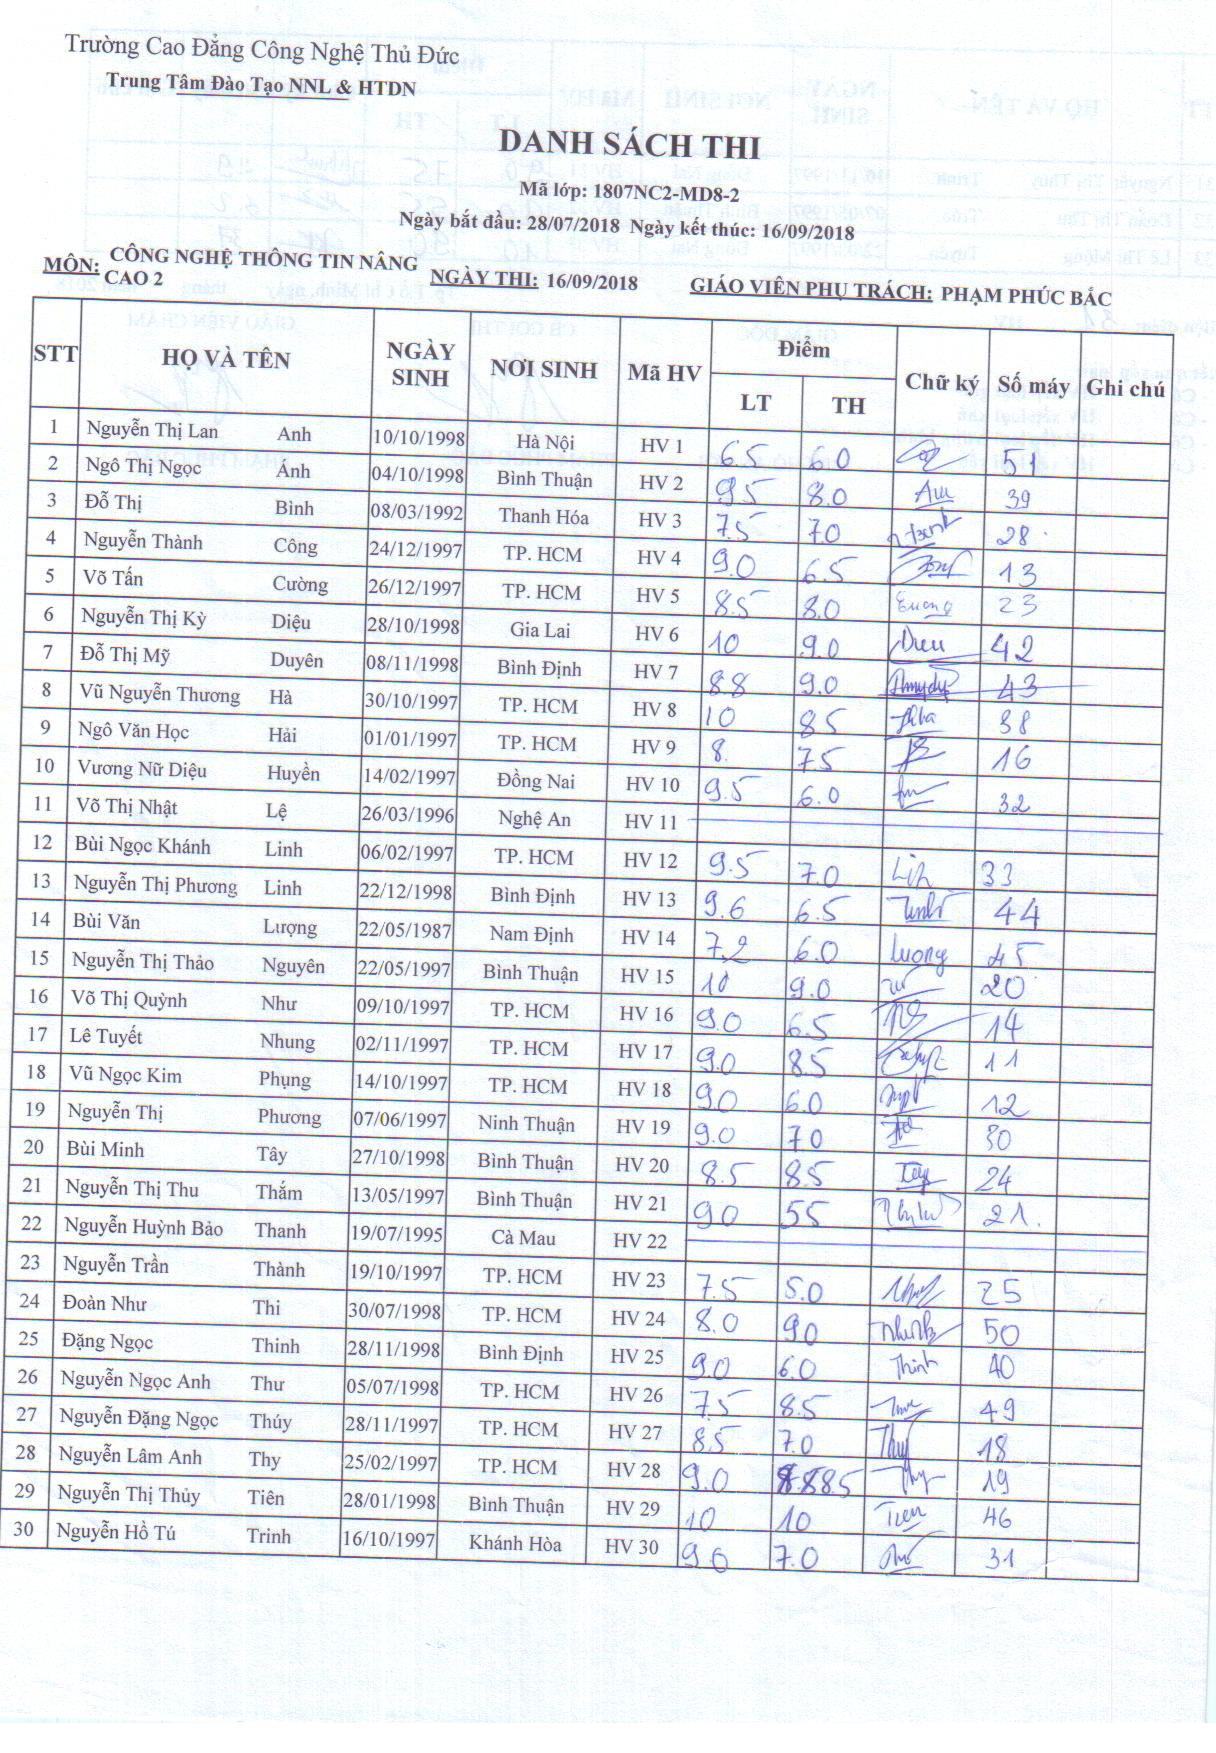 Trường Cao Đẳng Công Nghệ Thủ Đức
Trung Tâm Đào Tạo NNL & HTDN
DANH SÁCH THI
Mã lớp: 1807NC2-MD8-2
Ngày bắt đầu: 28/07/2018 Ngày kết thúc: 16/09/2018
MÔN: CÔNG NGHỆ THÔNG TIN NÂNG CAO 2 NGÀY THI: 16/09/2018 GIÁO VIÊN PHỤ TRÁCH: PHẠM PHÚC BẮC
STT HỌ VÀ TÊN NGÀY SINH NƠI SINH Mã HV Điểm Chữ ký Số máy Ghi chú
LT TH
1 Nguyễn Thị Lan Anh 10/10/1998 Hà Nội HV 1 6.5 6.0 51
2 Ngô Thị Ngọc Ánh 04/10/1998 Bình Thuận HV 2 9.5 8.0 39
3 Đỗ Thị Bình 08/03/1992 Thanh Hóa HV 3 7.5 7.0 28
4 Nguyễn Thành Công 24/12/1997 TP. HCM HV 4 9.0 6.5 13
5 Võ Tấn Cường 26/12/1997 TP. HCM HV 5 8.5 8.0 23
6 Nguyễn Thị Kỳ Diệu 28/10/1998 Gia Lai HV 6 10 9.0 42
7 Đỗ Thị Mỹ Duyên 08/11/1998 Bình Định HV 7 88 9.0 43
8 Vũ Nguyễn Thương Hà 30/10/1997 TP. HCM HV 8 10 85 38
9 Ngô Văn Học Hải 01/01/1997 TP. HCM HV 9 8. 75 16
10 Vương Nữ Diệu Huyền 14/02/1997 Đồng Nai HV 10 9.5 6.0 32
11 Võ Thị Nhật Lệ 26/03/1996 Nghệ An HV 11
12 Bùi Ngọc Khánh Linh 06/02/1997 TP. HCM HV 12 9.5 7.0 33
13 Nguyễn Thị Phương Linh 22/12/1998 Bình Định HV 13 9.6 6.5 44
14 Bùi Văn Lượng 22/05/1987 Nam Định HV 14 7.2 6.0 Luong 45
15 Nguyễn Thị Thảo Nguyên 22/05/1997 Bình Thuận HV 15 10 9.0 20
16 Võ Thị Quỳnh Như 09/10/1997 TP. HCM HV 16 9.0 6.5 14
17 Lê Tuyết Nhung 02/11/1997 TP. HCM HV 17 9.0 8.5 11
18 Vũ Ngọc Kim Phụng 14/10/1997 TP. HCM HV 18 9.0 6.0 12
19 Nguyễn Thị Phương 07/06/1997 Ninh Thuận HV 19 9.0 70 30
20 Bùi Minh Tây 27/10/1998 Bình Thuận HV 20 8.5 8.5 24
21 Nguyễn Thị Thu Thắm 13/05/1997 Bình Thuận HV 21 90 55 21.
22 Nguyễn Huỳnh Bảo Thanh 19/07/1995 Cà Mau HV 22
23 Nguyễn Trần Thành 19/10/1997 TP. HCM HV 23 7.5 5.0 25
24 Đoàn Như Thi 30/07/1998 TP. HCM HV 24 8.0 90 50
25 Đặng Ngọc Thinh 28/11/1998 Bình Định HV 25 9.0 6.0 Thinh 40
26 Nguyễn Ngọc Anh Thư 05/07/1998 TP. HCM HV 26 7.5 8.5 49
27 Nguyễn Đặng Ngọc Thúy 28/11/1997 TP. HCM HV 27 8.5 7.0 18
28 Nguyễn Lâm Anh Thy 25/02/1997 TP. HCM HV 28 9.0 8.5 19
29 Nguyễn Thị Thủy Tiên 28/01/1998 Bình Thuận HV 29 10 10 Tien 46
30 Nguyễn Hồ Tú Trinh 16/10/1997 Khánh Hòa HV 30 9.0 7.0 31